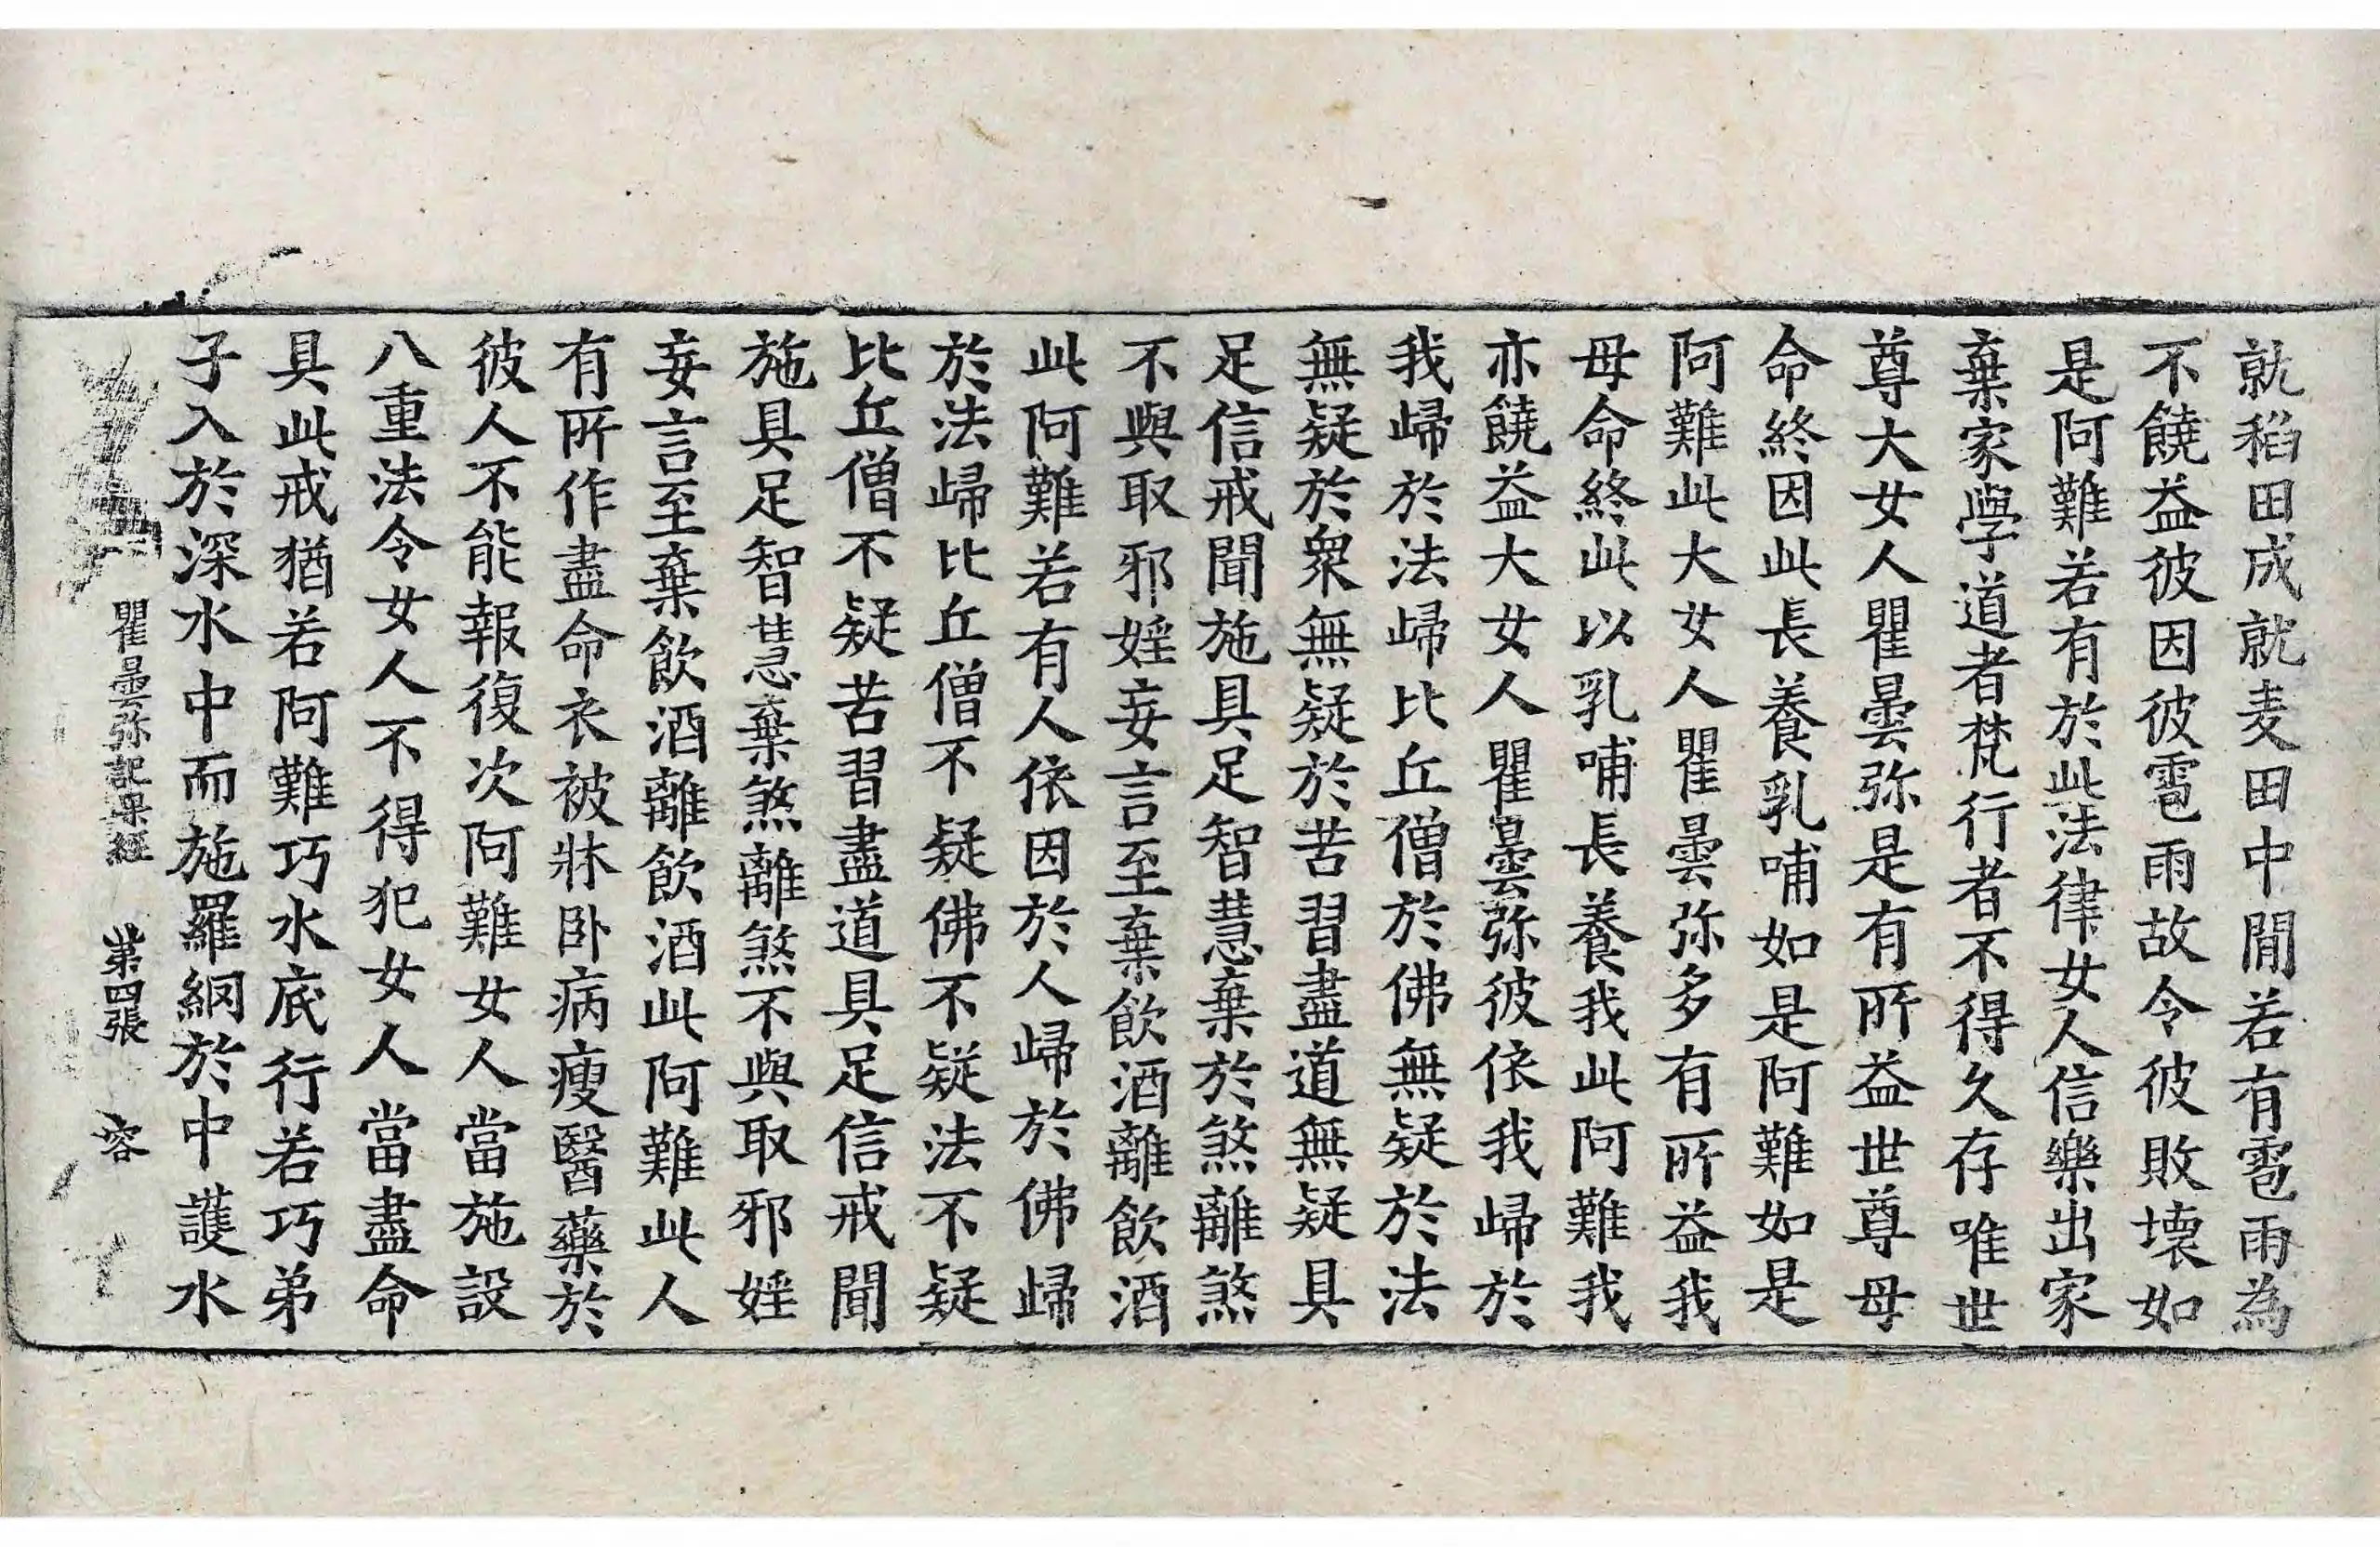 就稻田成就麦田中間若有雹雨為
不饒益彼因彼雹雨故令彼敗壞如
是阿難若有於此法律女人信樂出家
棄家學道者梵行者不得久存唯世
尊大女人瞿曇弥是有所益世尊母
命終因此長養乳哺如是阿難如是
阿難此大女人瞿曇弥多有所益我
母命終此以乳哺長養我此阿難我
亦饒益大女人瞿曇弥彼依我歸於
我歸於法歸比丘僧於佛無疑於法
無疑於衆無疑於苦習盡道無疑具
足信戒聞施具足智慧棄於煞離煞
不與取邪婬妄言至棄飲酒離飲酒
此阿難若有人依因於人歸於佛歸
於法歸比丘僧不疑佛不疑法不疑
比丘僧不疑苦習盡道具足信戒聞
施具足智慧棄煞離煞不與取邪婬
妄言至棄飲酒離飲酒此阿難此人
有所作盡命衣被牀卧病瘦醫藥於
彼人不能報復次阿難女人當施設
八重法令女人不得犯女人當盡命
具此戒猶若阿難巧水底行若巧弟
子入於深水中而施羅網於中護水
瞿曇弥記果經 第四張 容